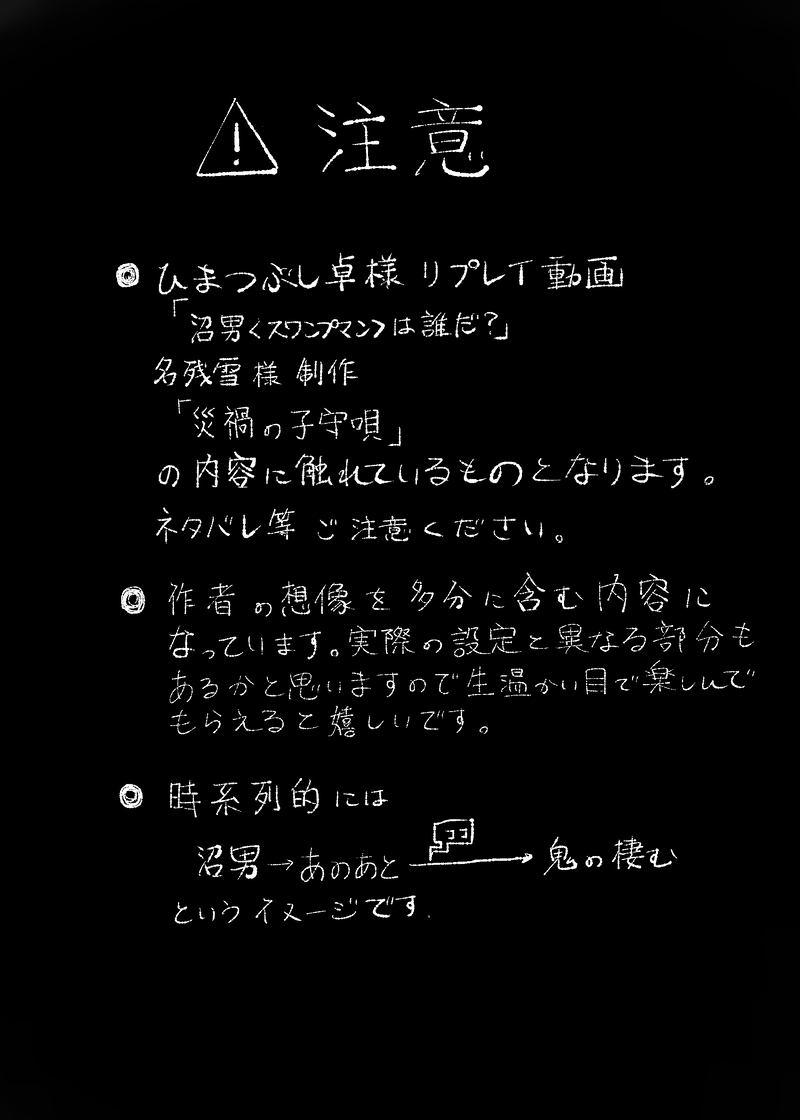 ⚠ 注意
◎ ひまつぶし卓様 リプレイ動画
「沼男<スワンプマン>は誰だ?」
名残雪様 制作
「災禍の子守唄」
の内容に触れているものとなります。
ネタバレ等 ご注意ください。
◎ 作者の想像を多分に含む内容に
なっています。実際の設定と異なる部分も
あるかと思いますので生温かい目で楽しんで
もらえると嬉しいです。
◎ 時系列的には
沼男→あのあと→鬼の棲む
というイメージです.